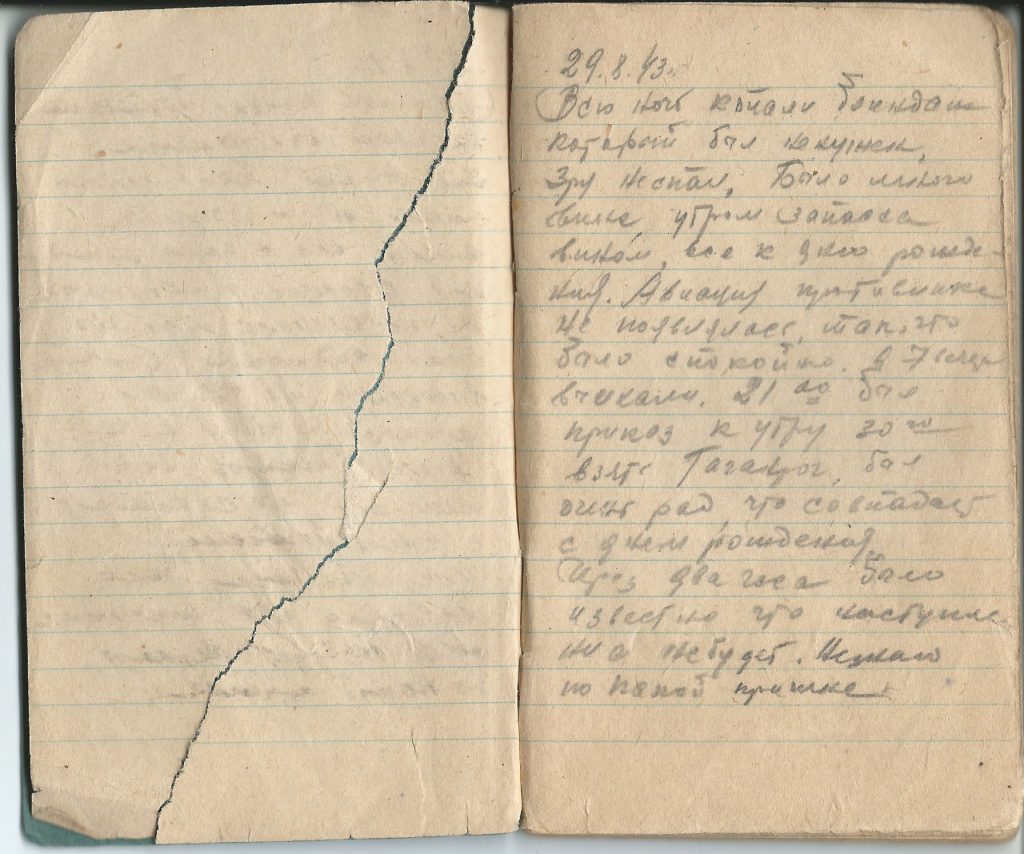 29.8.43.
Всю ночь копали блиндаж
который был не нужен.
Зря не спал. Было много
вина, утром запаска
вином, все к дню рожде-
ния. Авиация противника
не появлялась, так что
было спокойно. В 7 вечера
выехали. 21 00 был
приказ к утру 30 го
взять Таганрог, был
очень рад, что совпадает
с днем рождения.
Через два часа было
известно что наступле
ния не будет. Не знаю
по какой причине.